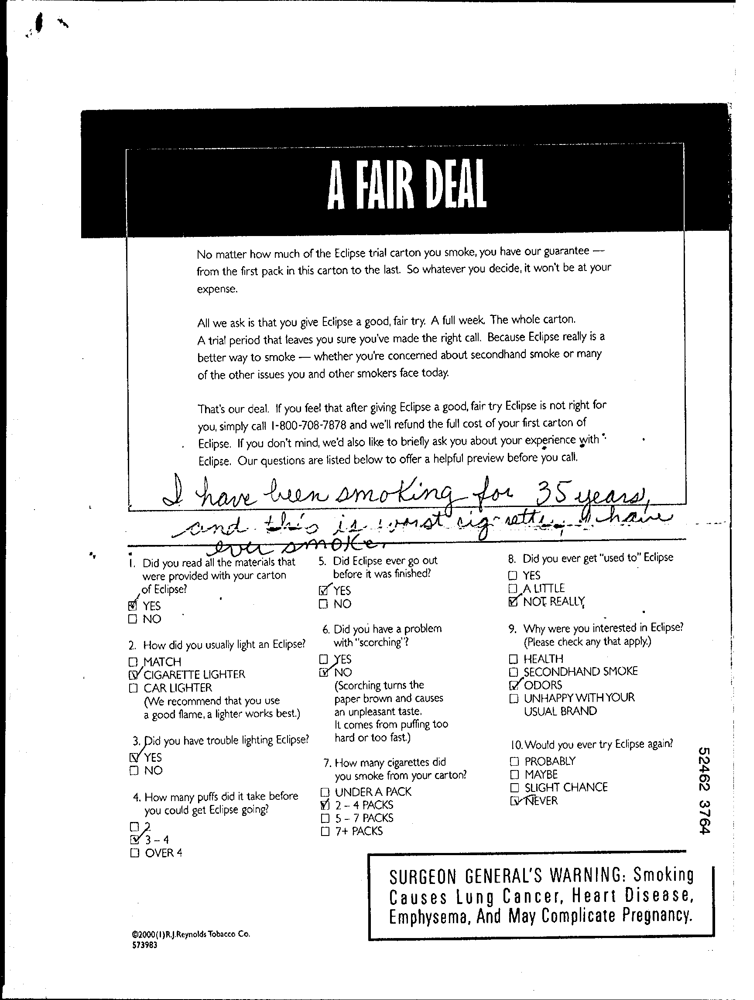 A FAIR DEAL
No matter how much of the Eclipse trial carton you smoke, you have our guarantee —
from the first pack in this carton to the last. So whatever you decide, it won't be at your
expense.
All we ask is that you give Eclipse a good, fair try. A full week. The whole carton.
A trial period that leaves you sure you've made the right call. Because Eclipse really is a
better way to smoke — whether you're concerned about secondhand smoke or many
of the other issues you and other smokers face today.
That's our deal. If you feel that after giving Eclipse a good, fair try Eclipse is not right for
you, simply call 1-800-708-7878 and we'll refund the full cost of your first carton of
Eclipse. If you don't mind, we'd also like to briefly ask you about your experience with
Eclipse. Our questions are listed below to offer a helpful preview before you call.
I have been smoking for 35 years,
and this is worst cigrette I have
ever smoke.
1. Did you read all the materials that
were provided with your carton
of Eclipse?
YES
NO
2. How did you usually light an Eclipse?
MATCH
CIGARETTE LIGHTER
CAR LIGHTER
(We recommend that you use
a good flame, a lighter works best.)
3. Did you have trouble lighting Eclipse?
YES
NO
4. How many puffs did it take before
you could get Eclipse going?
2
3 – 4
OVER 4
5. Did Eclipse ever go out
before it was finished?
YES
NO
6. Did you have a problem
with "scorching"?
YES
NO
(Scorching turns the
paper brown and causes
an unpleasant taste.
It comes from puffing too
hard or too fast.)
7. How many cigarettes did
you smoke from your carton?
UNDER A PACK
2 – 4 PACKS
5 – 7 PACKS
7+ PACKS
8. Did you ever get "used to" Eclipse
YES
A LITTLE
NOT REALLY
9. Why were you interested in Eclipse?
(Please check any that apply.)
HEALTH
SECONDHAND SMOKE
ODORS
UNHAPPY WITH YOUR
USUAL BRAND
10. Would you ever try Eclipse again?
PROBABLY
MAYBE
SLIGHT CHANCE
NEVER
52462 3764
SURGEON GENERAL'S WARNING: Smoking
Causes Lung Cancer, Heart Disease,
Emphysema, And May Complicate Pregnancy.
©2000(1)R.J.Reynolds Tobacco Co.
573983